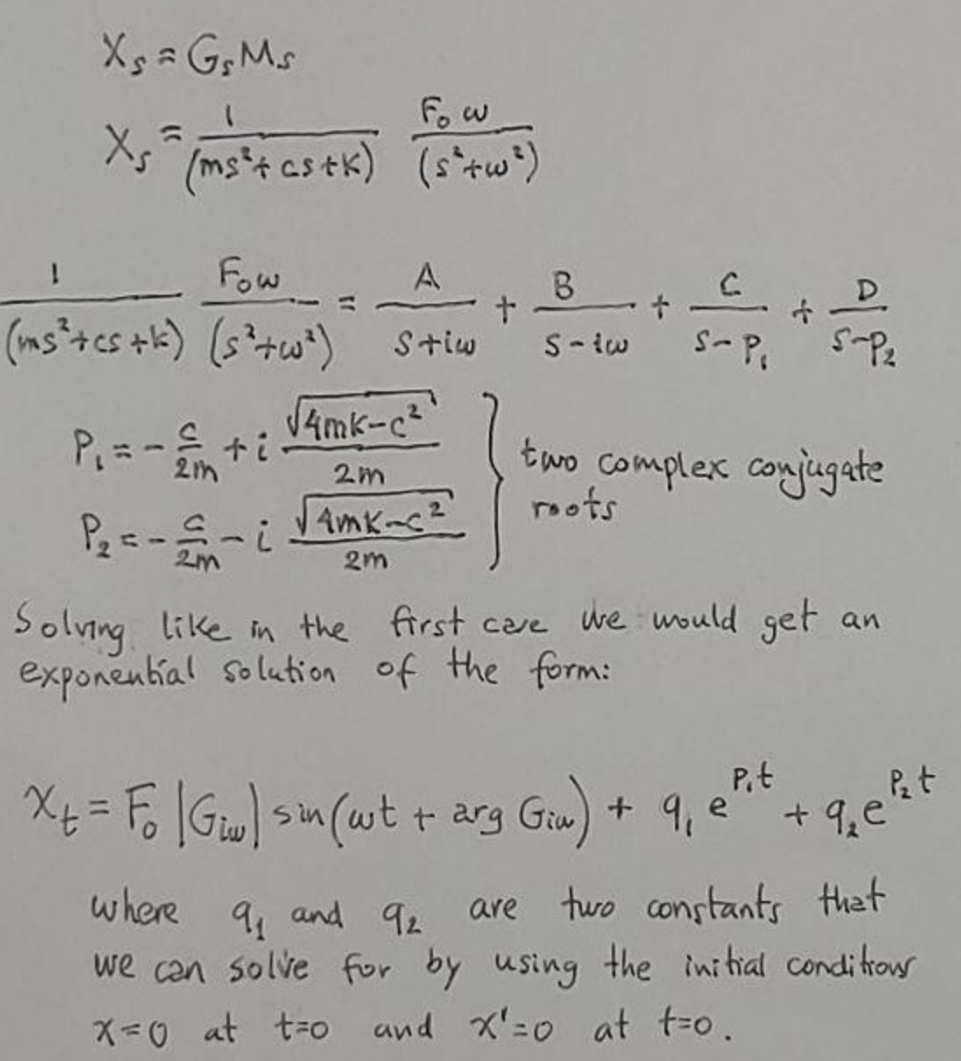 X_s = G_s M_s
X_s = 1/(ms²+cs+k) F₀ω/(s²+ω²)
1/(ms²+cs+k) F₀ω/(s²+ω²) = A/(s+iω) + B/(s-iω) + C/(s-P₁) + D/(s-P₂)
P₁ = -c/2m + i √(4mk-c²)/2m
two complex conjugate
roots
P₂ = -c/2m - i √(4mk-c²)/2m
Solving like in the first case we would get an
exponential solution of the form:
x_t = F₀ |G_iω| sin(ωt + arg G_iω) + q₁ e^(P₁t) + q₂ e^(P₂t)
where q₁ and q₂ are two constants that
we can solve for by using the initial conditions
x=0 at t=0 and x'=0 at t=0.